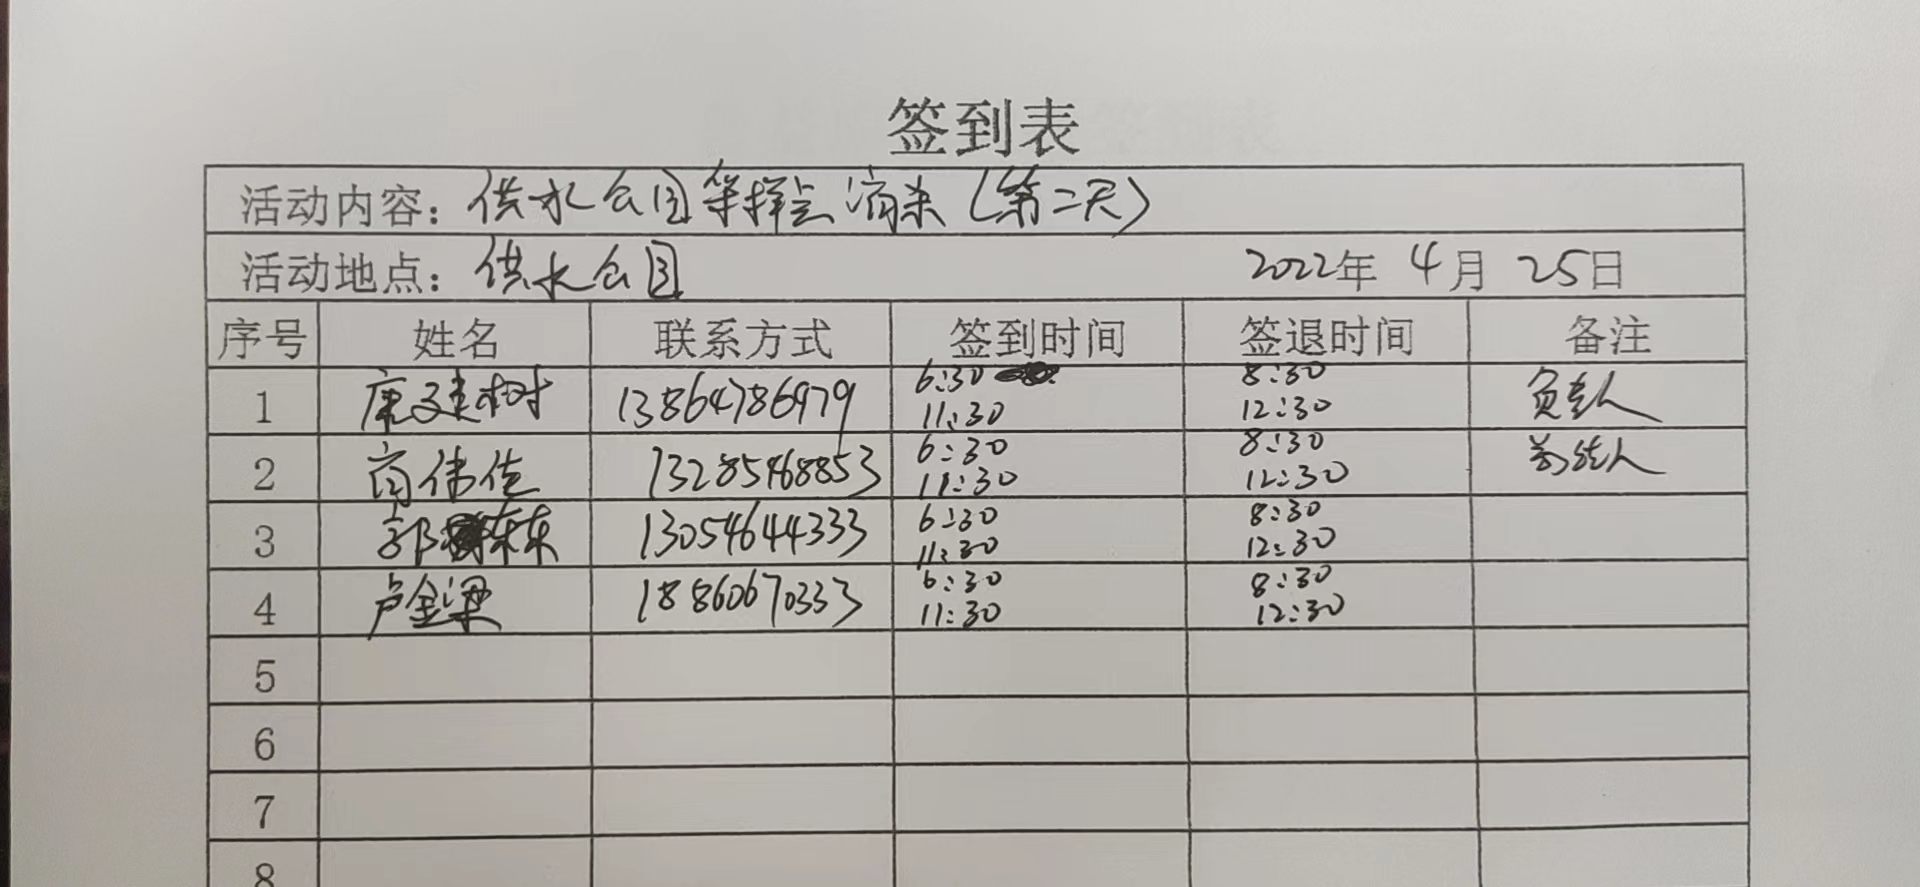 签到表
活动内容：供水公园等样点消杀（第二天）
活动地点：供水公园 2022年 4月 25日
序号 姓名 联系方式 签到时间 签退时间 备注
1 康建树 13864786979 6:30 11:30 8:30 12:30 负责人
2 高伟佳 13285468853 6:30 11:30 8:30 12:30
3 郭 东 13054644333 6:30 11:30 8:30 12:30
4 卢金梁 18860670333 6:30 11:30 8:30 12:30
5
6
7
8